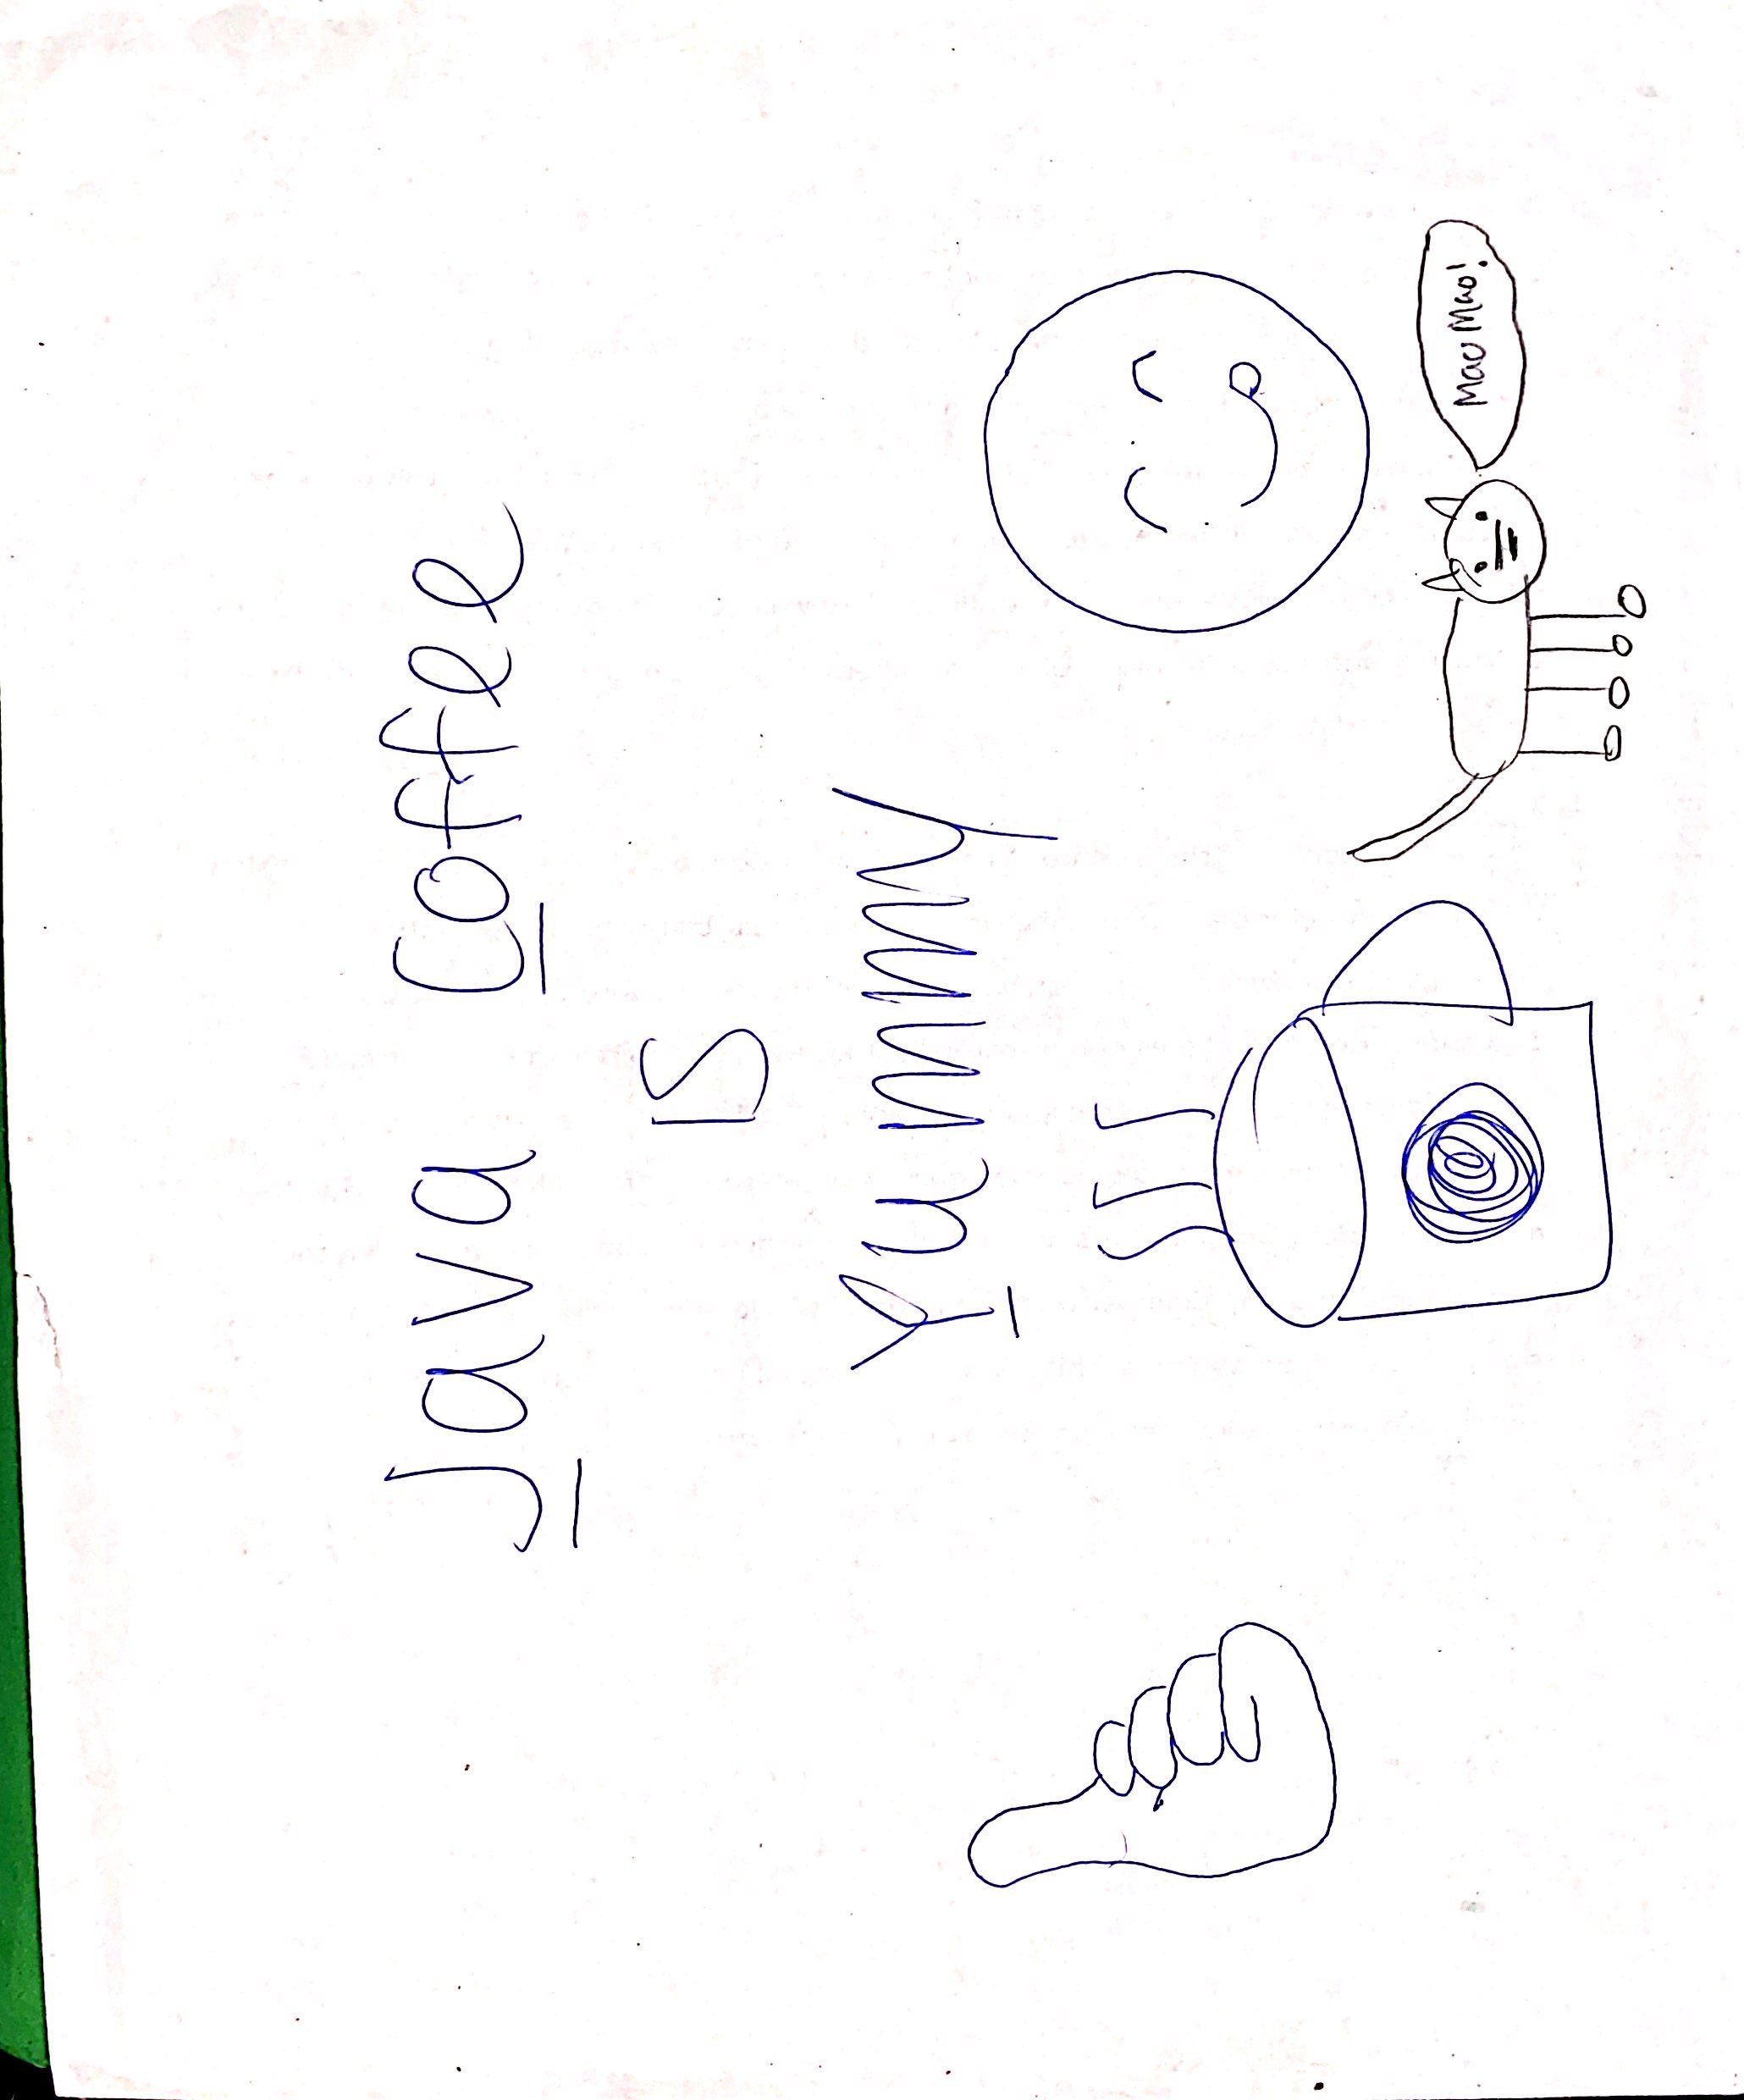 Java Coffee
is
Yummmy
Mao Mao!